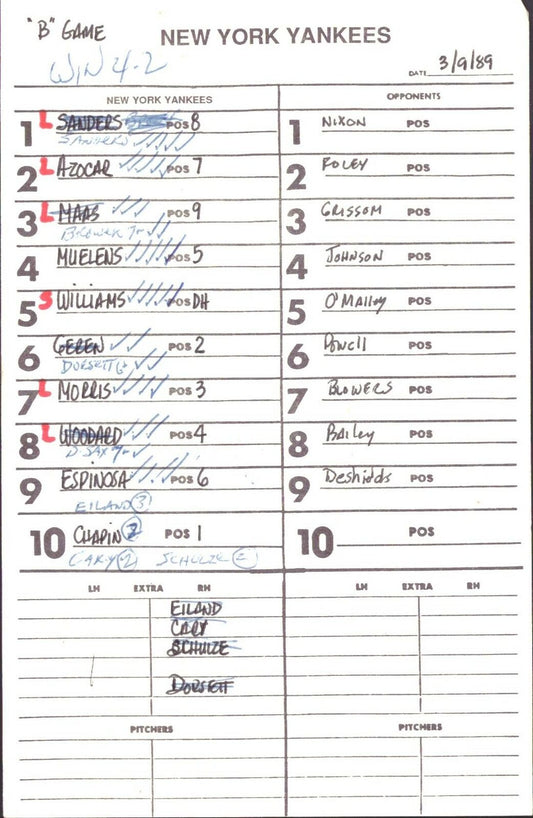 "B" GAME
NEW YORK YANKEES
WIN 4-2
DATE 3/9/89
NEW YORK YANKEES
OPPONENTS
1 L SANDERS POS 8
SANDERS
1 NIXON POS
2 L AZOCAR POS 7
2 FOLEY POS
3 L MAAS POS 9
BROWER 7-
3 GRISSOM POS
4 MUELENS POS 5
4 JOHNSON POS
5 S WILLIAMS POS DH
5 O'MALLEY POS
6 GEREN POS 2
DORSETT 6
6 POWELL POS
7 L MORRIS POS 3
7 BLOWERS POS
8 L WOODARD POS 4
D. SAX 7-
8 BAILEY POS
9 ESPINOSA POS 6
9 Deshields POS
EILAND 3
10 CHAPIN 2 POS 1
CARY 2 SCHULZE 2
10 POS
LH EXTRA RH
LH EXTRA RH
EILAND
CARY
SCHULZE
DORSETT
PITCHERS
PITCHERS